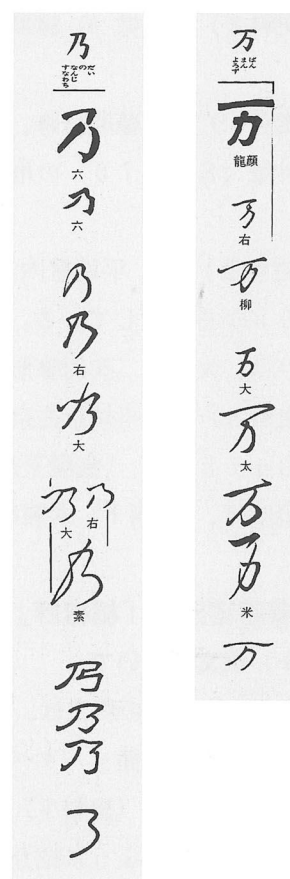 万
ばん
まん
よろず
万
龍顔
万
右
万
柳
万
大
万
太
万
万
米
万
乃
だい
の
なんじ
すなわち
乃
六
乃
六
乃
乃
右
乃
大
乃
右
乃
大
乃
素
乃
乃
乃